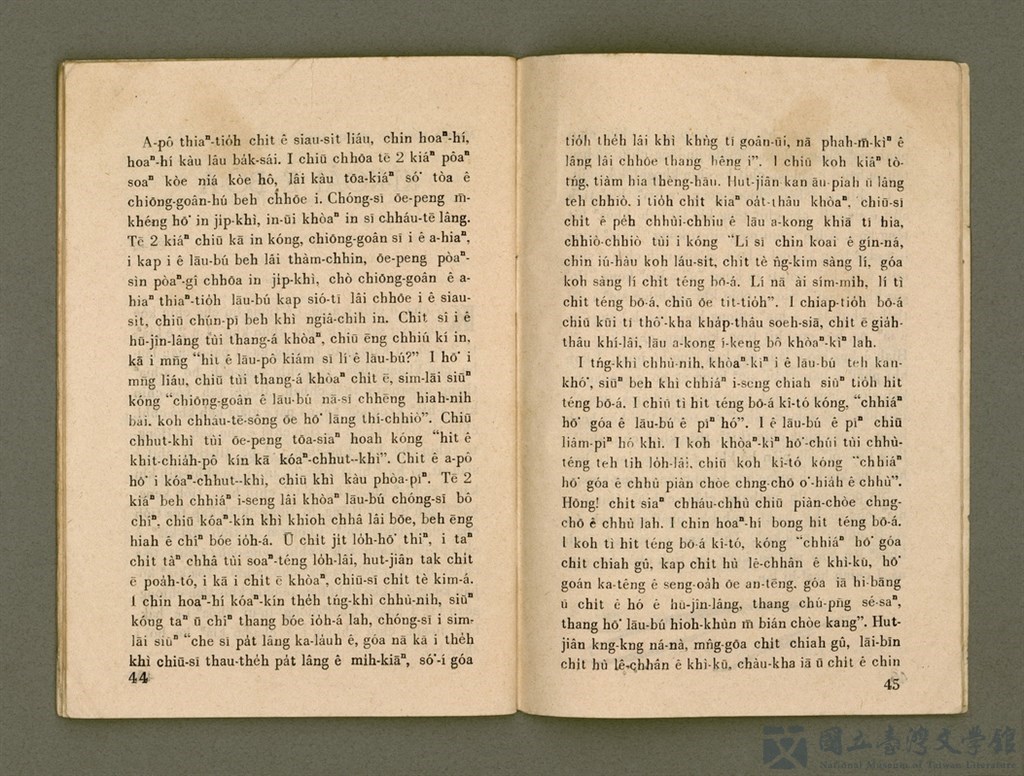 A-pô thiaⁿ-tio̍h chit ê siau-sit liáu, chin hoaⁿ-hí,
hoaⁿ-hí kàu lâu ba̍k-sái. I chiū chhōa tē 2 kiáⁿ pôaⁿ
soaⁿ kòe niá kòe hô, lâi kàu tōa-kiáⁿ só͘ tòa ê
chiōng-goân-hú beh chhōe i. Chóng-sī ōe-peng m̄-
khéng hō͘ in ji̍p-khì, in-ūi khòaⁿ in sī chháu-tē lâng.
Tē 2 kiáⁿ chiū kā in kóng, chiōng-goân sī i ê a-hiaⁿ,
i kap i ê lāu-bú beh lâi thàm-chhin, ōe-peng pòaⁿ-
sìn pòaⁿ-gî chhōa in ji̍p-khì, chò chiōng-goân ê a-
hiaⁿ thiaⁿ-tio̍h lāu-bú kap sió-tī lâi chhōe i ê siau-
sit, chiū chún-pī beh khì ngiâ-chih in. Chit sî i ê
hū-jîn-lâng tùi thang-á khòaⁿ, chiū ēng chhiú kí in,
kā i mn̄g "hit ê lāu-pô kiám sī lí ê lāu-bú?" I hō͘ i
mn̄g liáu, chiū tùi thang-á khòaⁿ chi̍t ē, sim-lāi siūⁿ
kóng "chiōng-goân ê lāu-bú nā-sī chhēng hiah-nih
bái, koh chháu-tē-sông ōe hō͘ lâng thí-chhiò". Chiū
chhut-khì tùi ōe-peng tōa-siaⁿ hoah kóng "hit ê
khit-chia̍h-pô kín kā kóaⁿ-chhut--khì". Chit ê a-pô
hō͘ i kóaⁿ-chhut--khì, chiū khì kàu phòa-pīⁿ. Tē 2
kiáⁿ beh chhiáⁿ i-seng lâi khòaⁿ lāu-bú chóng-sī bô
chîⁿ, chiū kóaⁿ-kín khì khioh chhâ lâi bōe, beh ēng
hiah ê chîⁿ bóe io̍h-á. Ū chi̍t ji̍t lo̍h-hō͘ thiⁿ, i taⁿ
chi̍t tàⁿ chhâ tùi soaⁿ-téng lo̍h-lâi, hut-jiân tak chi̍t
ē poa̍h-tó, i kā i chi̍t ē khòaⁿ, chiū-sī chi̍t tè kim-á.
I chin hoaⁿ-hí kóaⁿ-kín the̍h tńg-khì chhù-nih, siūⁿ
kóng taⁿ ū chîⁿ thang bóe io̍h-á lah, chóng-sī i sim-
lāi siūⁿ "che sī pa̍t lâng ka-láuh ê, góa nā kā i the̍h
khì chiū-sī thau-the̍h pa̍t lâng ê mi̍h-kiāⁿ, só͘-í góa
44
tio̍h the̍h lâi khì khǹg tī goân-ūi, nā phah-m̄-kìⁿ ê
lâng lâi chhōe thang hêng i". I chiū koh kiâⁿ tò-
tńg, tiàm hia thèng-hāu. Hut-jiân kan āu-piah ū lâng
teh chhiò, i tio̍h chi̍t kiaⁿ oa̍t-thâu khòaⁿ, chiū-sī
chi̍t ê pe̍h chhùi-chhiu ê lāu a-kong khiā tī hia,
chhiò-chhiò tùi i kóng "Lí sī chin koai ê gín-ná,
chin iú-hàu koh láu-si̍t, chit tè n̂g-kim sàng lí, góa
koh sàng lí chi̍t téng bō-á. Lí nā ài sím-mi̍h, lí tì
chit téng bō-á, chiū ōe tit-tio̍h". I chiap-tio̍h bō-á
chiū kūi tī thô͘-kha kha̍p-thâu soeh-siā, chi̍t ē gia̍h-
thâu khí-lâi, lāu a-kong í-keng bô khòaⁿ-kìⁿ lah.
I tńg-khì chhù-nih, khòaⁿ-kìⁿ i ê lāu-bú teh kan-
khó͘, siūⁿ beh khì chhiáⁿ i-seng chiah siūⁿ tio̍h hit
téng bō-á. I chiū tì hit téng bō-á kî-tó kóng, "chhiáⁿ
hō͘ góa ê lāu-bú ê pīⁿ hó". I ê lāu-bú ê pīⁿ chiū
liám-piⁿ hó khì. I koh khòaⁿ-kìⁿ hō͘-chúi tùi chhù-
téng teh tih lo̍h-lâi, chiū koh kî-tó kóng "chhiáⁿ
hō͘ góa ê chhù piàn chòe chng-chō o͘-hia̍h ê chhù".
Hōng! chi̍t siaⁿ chháu-chhù chiū piàn-chòe chng-
chō ê chhù lah. I chin hoaⁿ-hí bong hit téng bō-á.
I koh tì hit téng bō-á kî-tó, kóng "chhiáⁿ hō͘ góa
chi̍t chiah gû, kap chi̍t hù lê-chhân ê khì-kū, hō͘
goán ka-têng ê seng-oa̍h ōe an-tēng, góa iā hi-bāng
ū chi̍t ê hó ê hū-jîn-lâng, thang chú-pn̄g sé-saⁿ,
thang hō͘ lāu-bú hioh-khùn m̄ bián chòe kang". Hut-
jiân kng-kng ná-nà, mn̂g-gōa chi̍t chiah gû, lāi-bīn
chi̍t hù lê-chhân ê khì-kū, chàu-kha iā ū chi̍t ê chin
45
國立臺灣文學館
National Museum of Taiwan Literature